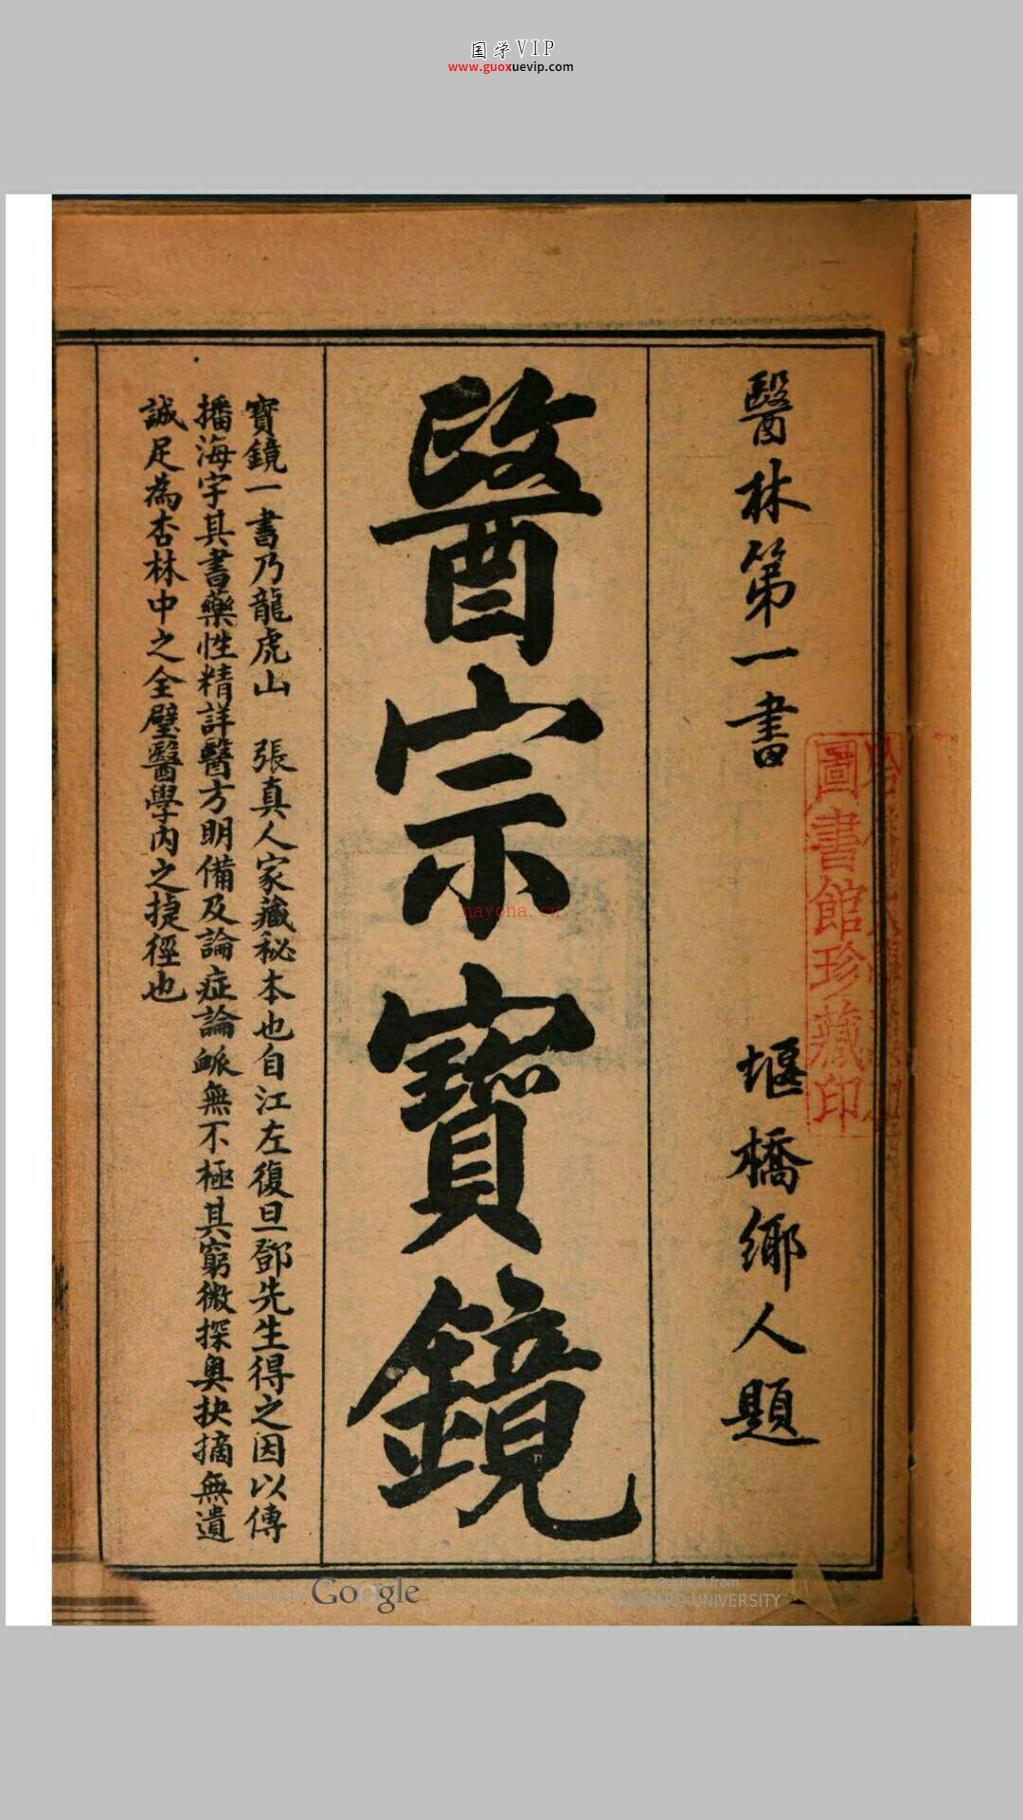 国学VIP
www.guoxuevip.com
醫林第一書
堰橋鄉人題
醫宗寶鏡
寶鏡一書乃龍虎山 張真人家藏秘本也自江左復旦鄧先生得之因以傳
播海宇其書藥性精詳醫方明備及論症論脈無不極其窮微探奧抉摘無遺
誠足為杏林中之全璧醫學內之捷徑也
圖書館珍藏印
nayona.cn
Google
Original from
HARVARD UNIVERSITY